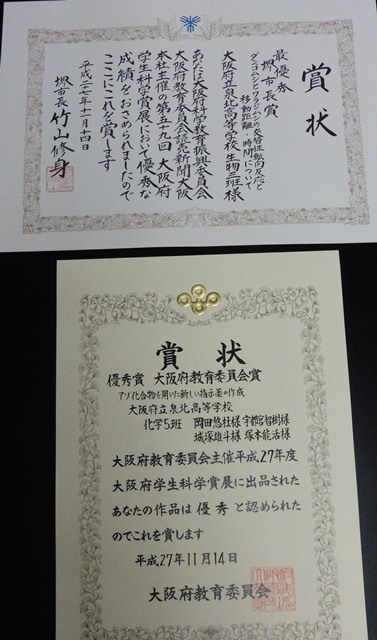 賞状
最優秀
堺市長賞
ダンゴムシとワラジムシの交替性転向反応と
移動距離・時間について
大阪府立泉北高等学校生物三班様
あなたは大阪府科学教育振興委員会
大阪府教育委員会読売新聞大阪
本社主催の第五十九回大阪府
学生科学賞展において優秀な
成績をおさめられましたので
ここにこれを賞します
平成二十七年十一月十四日
堺市長 竹山修身
賞状
優秀賞 大阪府教育委員会賞
アゾ化合物を用いた新しい指示薬の作成
大阪府立泉北高等学校
化学5班 岡田悠杜様 宇都宮智樹様
城塚雄斗様 塚本能活様
大阪府教育委員会主催平成27年度
大阪府学生科学賞展に出品された
あなたの作品は優秀と認められた
のでこれを賞します
平成27年11月14日
大阪府教育委員会